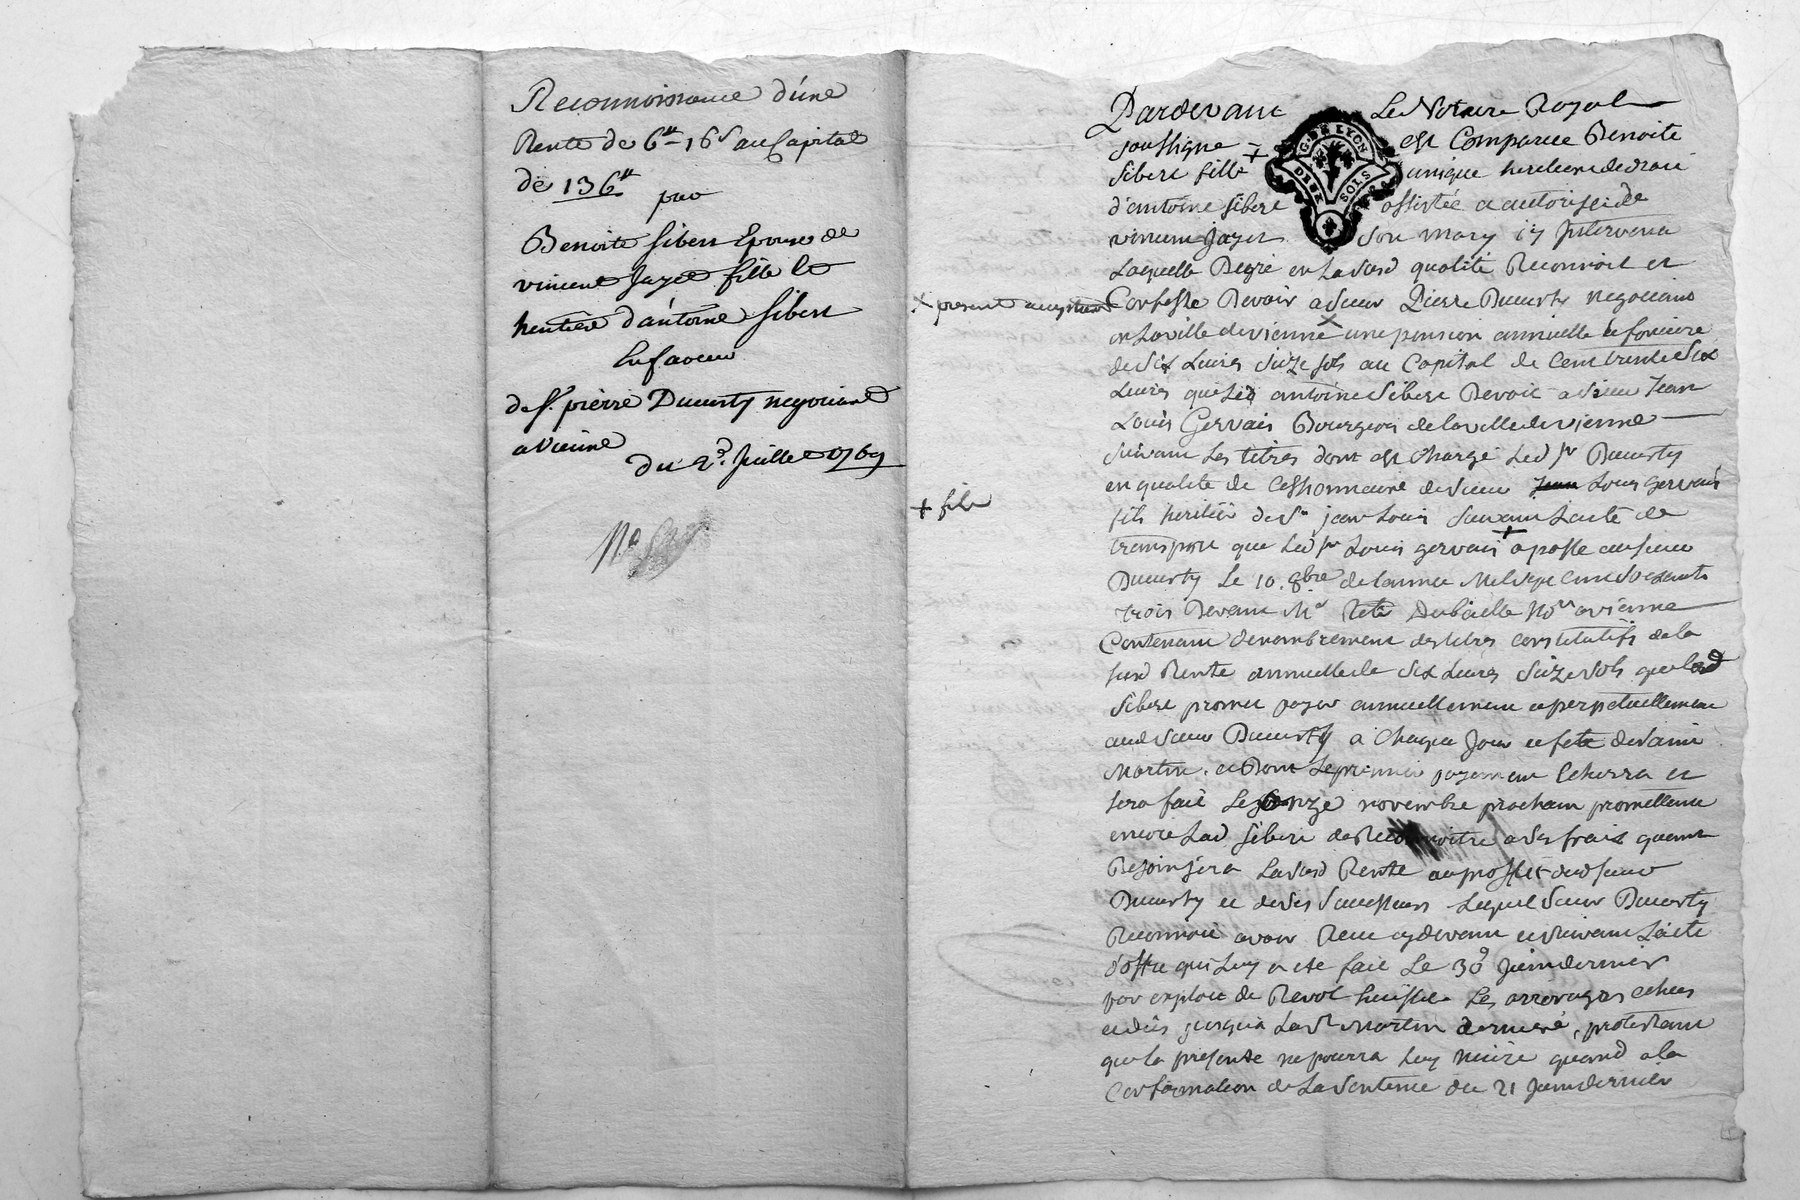 Reconnoissance d'une
Rente de 6ᵗᵗ 16ˢ au Capital
de 136ᵗᵗ
par
Benoite Sibert Epouse de
vincent Jayet fille et
heritiere d'antoine Sibert
En faveur
de Sʳ. pierre Ducurty negociant
a vienne
du 2ᵈ. Juillet 1769
Pardevant Le Notaire Royal
soussigné + est Comparue Benoite
Sibert fille unique heritiere de droit
d'antoine Sibert assistée et autorisée de
vincent Jayet son mary icy Intervenu
G. DE LYON
DIX SOLS
Laquelle De gré en Lasusd qualité Reconnoit et
x present acceptant
Confesse Devoir a Sieur Pierre Ducurty negociant
en La ville de vienne x une pension annuelle et fonciere
de Six Livres Seize sols au Capital de Cent trente Six
Livres que Led antoine Sibert Devoit a Sieur Jean
Louis Gervais Bourgeois de la ville de vienne
Suivant Les titres dont est Chargé Led Sʳ Ducurty
en qualité de Cessionnaire de Sieur Louis Gervais
+ fils
fils heritier de Sʳ jean Louis Suivant L'acte de
transport que Led Sʳ Louis gervais + a passé au Sieur
Ducurty Le 10. 9bre de l'annee Mil Sept Cent Soixante
trois Devant Mᵉ Noʳᵉ a vienne
Contenant denombrement des titres constitutifs de la
susd Rente annuelle de Six Livres Seize Sols que lad
Sibert promet payer annuellement et perpetuellement
aud Sieur Ducurty a Chaque Jour et fete de Saint
Martin. et Dont Le premier payement Echerra et
sera fait Le onze novembre prochain promettant
encore Lad Sibert de Reconnoitre a Ses frais quand
Besoin Sera Lasusd Rente au proffit dud Sieur
Ducurty et de Ses Successeurs Lequel Sieur Ducurty
Reconnoit avoir Recu cy devant et Suivant L'acte
d'offre qui Luy a eté fait Le 30ᵉ Juin dernier
par exploit de Revol huissier Les arrerages echus
et dûs jusqu'a La Sᵗ Martin derniere, protestant
que la presente ne pourra Luy nuire quand a la
Confirmation de La Sentence du 21 Juin dernier